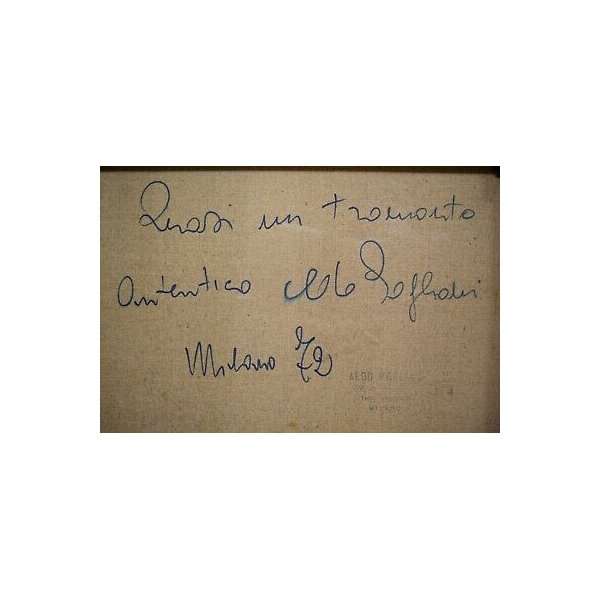 Quasi un tramonto
Autentico Aldo
Milano 72
ALDO
MILANO